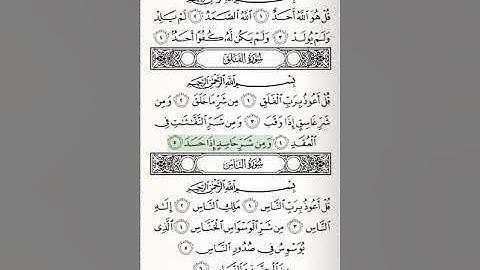 قُلْ هُوَ اللَّهُ أَحَدٌ ١ اللَّهُ الصَّمَدُ ٢ لَمْ يَلِدْ
وَلَمْ يُولَدْ ٣ وَلَمْ يَكُن لَّهُ كُفُوًا أَحَدٌ ٤
سُورَةُ الفَلَقِ
بِسْمِ اللَّهِ الرَّحْمَٰنِ الرَّحِيمِ
قُلْ أَعُوذُ بِرَبِّ الْفَلَقِ ١ مِن شَرِّ مَا خَلَقَ ٢ وَمِن
شَرِّ غَاسِقٍ إِذَا وَقَبَ ٣ وَمِن شَرِّ النَّفَّاثَاتِ فِي
الْعُقَدِ ٤ وَمِن شَرِّ حَاسِدٍ إِذَا حَسَدَ ٥
سُورَةُ النَّاسِ
بِسْمِ اللَّهِ الرَّحْمَٰنِ الرَّحِيمِ
قُلْ أَعُوذُ بِرَبِّ النَّاسِ ١ مَلِكِ النَّاسِ ٢ إِلَٰهِ
النَّاسِ ٣ مِن شَرِّ الْوَسْوَاسِ الْخَنَّاسِ ٤ الَّذِي
يُوَسْوِسُ فِي صُدُورِ النَّاسِ ٥